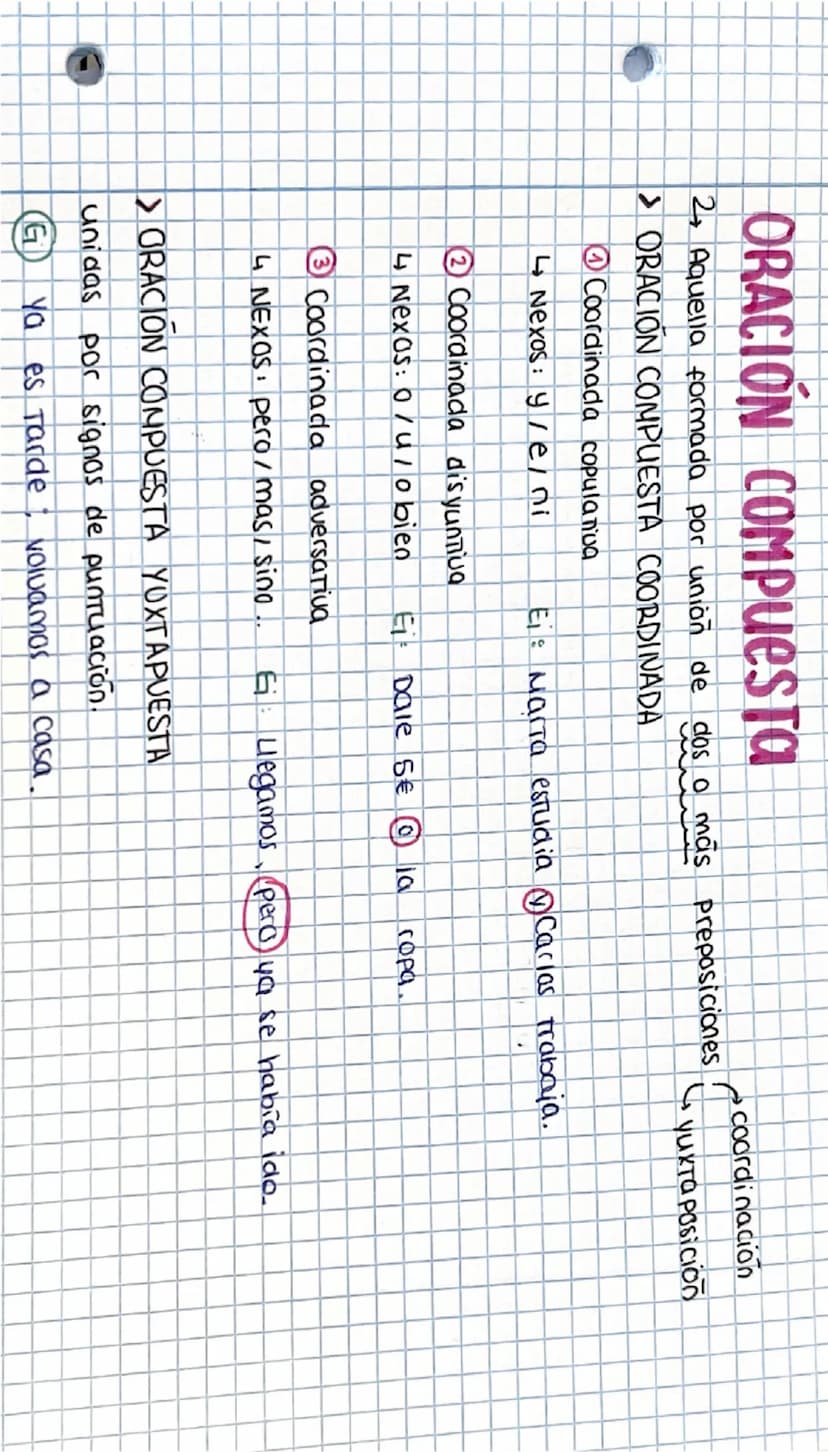 ORACIÓN COMPUESTA
↳ Aquella formada por unión de dos o más preposiciones ↱ coordinación
↳ yuxtaposición
> ORACIÓN COMPUESTA COORDINADA
① Coordinada copulativa
↳ Nexos: y / e / ni Ej: Marta estudia y Carlos trabaja.
② Coordinada disyuntiva
↳ Nexos: o / u / o bien Ej: Dale 5€ o la ropa.
③ Coordinada adversativa
↳ Nexos: pero / mas / sino.. Ej: Llegamos, pero ya se había ido.
> ORACIÓN COMPUESTA YUXTAPUESTA
unidas por signos de puntuación.
Ej Ya es tarde; volvamos a casa.